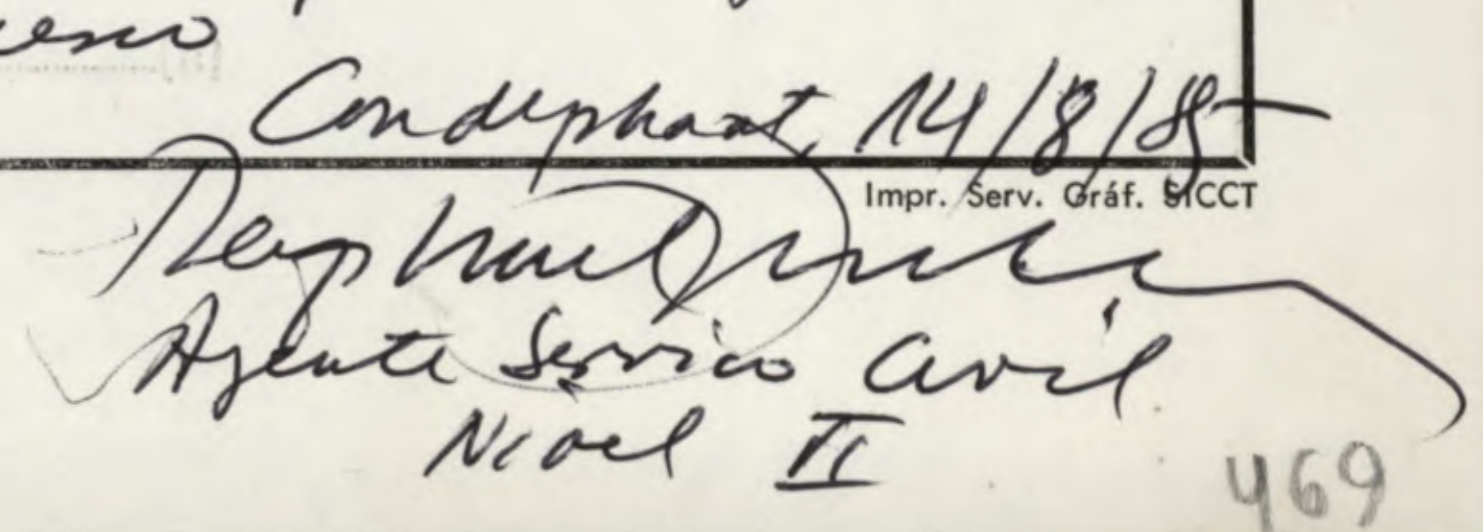 Condephaat, 14/8/85
Impr. Serv. Gráf. SICCT
Raphael
Agente Serviço Civil
Nível II
469